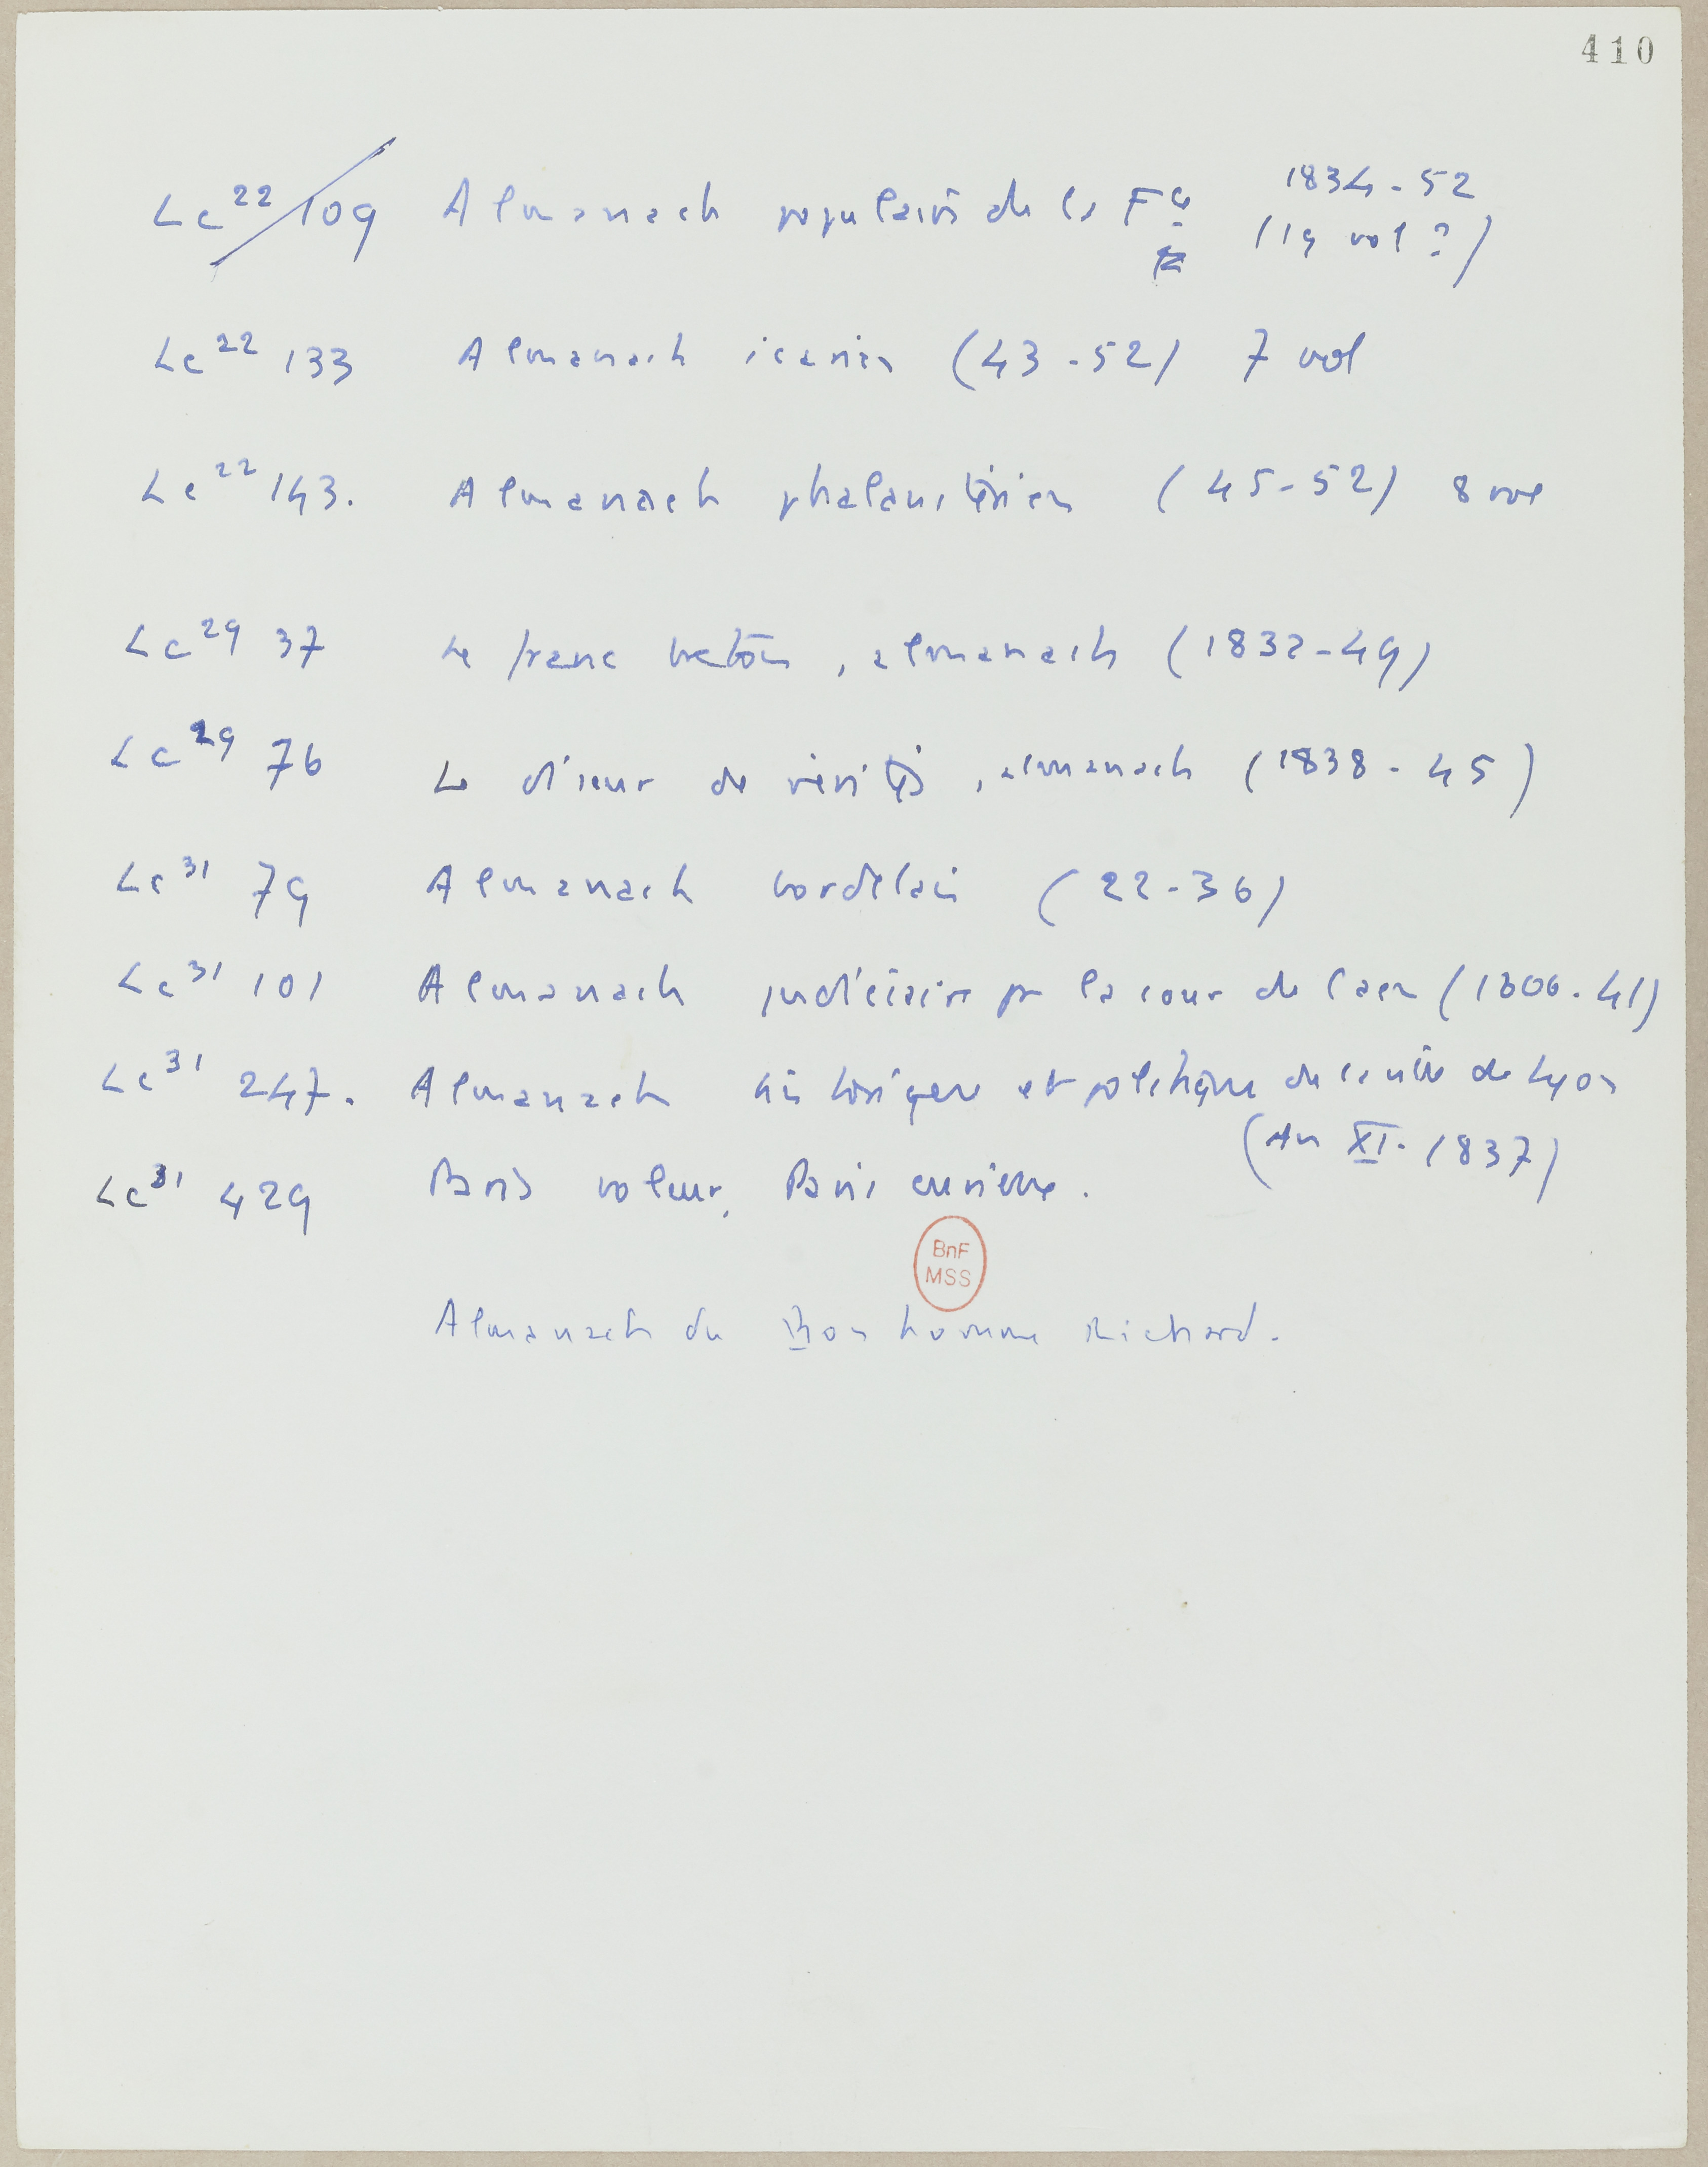 410
Lc²² 109 Almanach populaire de la Fce 1834-52
(19 vol ?)
Lc²² 133 Almanach icarien (43-52) 7 vol
Lc²² 143. Almanach phalanstérien (45-52) 8 vol
Lc²⁹ 37 Le franc breton, almanach (1832-49)
Lc²⁹ 76 Le diseur de vérités, almanach (1838-45)
Lc³¹ 79 Almanach bordelais (22-36)
Lc³¹ 101 Almanach judiciaire pr la cour de Caen (1806-41)
Lc³¹ 247. Almanach historique et politique de la ville de Lyon
(An XI-1837)
Lc³¹ 429 Paris voleur, Paris
BnF
MSS
Almanach du Bonhomme Richard.